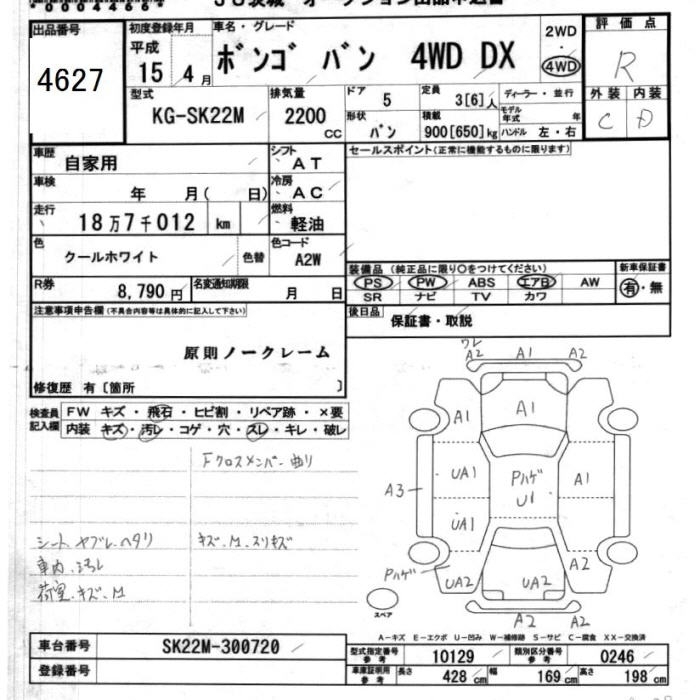 0004684
JU茨城 オークション出品申込書
出品番号
4627
初度登録年月
平成
15 4月
車名・グレード
ボンゴ バン 4WD DX
2WD
・
4WD
評価点
R
外装 内装
C D
型式
KG-SK22M
排気量
2200
CC
ドア
5
形状
バン
定員
3[6]人
積載
900[650]kg
ディーラー・並行
モデル年式 年
ハンドル 左・右
車歴
自家用
シフト
AT
車検
年 月( 日)
冷房
AC
走行
18万7千012 km
燃料
軽油
色
クールホワイト
色替
色コード
A2W
R券
8,790円
名変通知期限
月 日
セールスポイント(正常に機能するものに限ります)
装備品 (純正品に限り○をつけてください)
PS PW ABS エアB AW
SR ナビ TV カワ
新車保証書
有・無
後日品
保証書・取説
注意事項申告欄(不具合内容等は具体的に記入して下さい)
原則ノークレーム
修復歴 有〔箇所 〕
検査員記入欄
FW キズ・飛石・ヒビ割・リペア跡・×要
内装 キズ・汚レ・コゲ・穴・スレ・キレ・破レ
Fクロスメンバー曲り
シートヤブレ、ヘタリ
キズ、M、スリキズ
車内、汚レ
荷室、キズ、M
ワレ
A2 A1 A2
A1 A1
A3 UA1 Pハゲ U1 A1
UA1
Pハゲ UA2 UA2 A2
A2 A2
スペア
A-キズ E-エクボ U-凹み W-補修跡 S-サビ C-腐食 XX-交換済
車台番号
SK22M-300720
登録番号
型式指定番号
参考
10129
類別区分番号
参考
0246
車庫証明用
参考
長さ 428 cm 幅 169 cm 高さ 198 cm